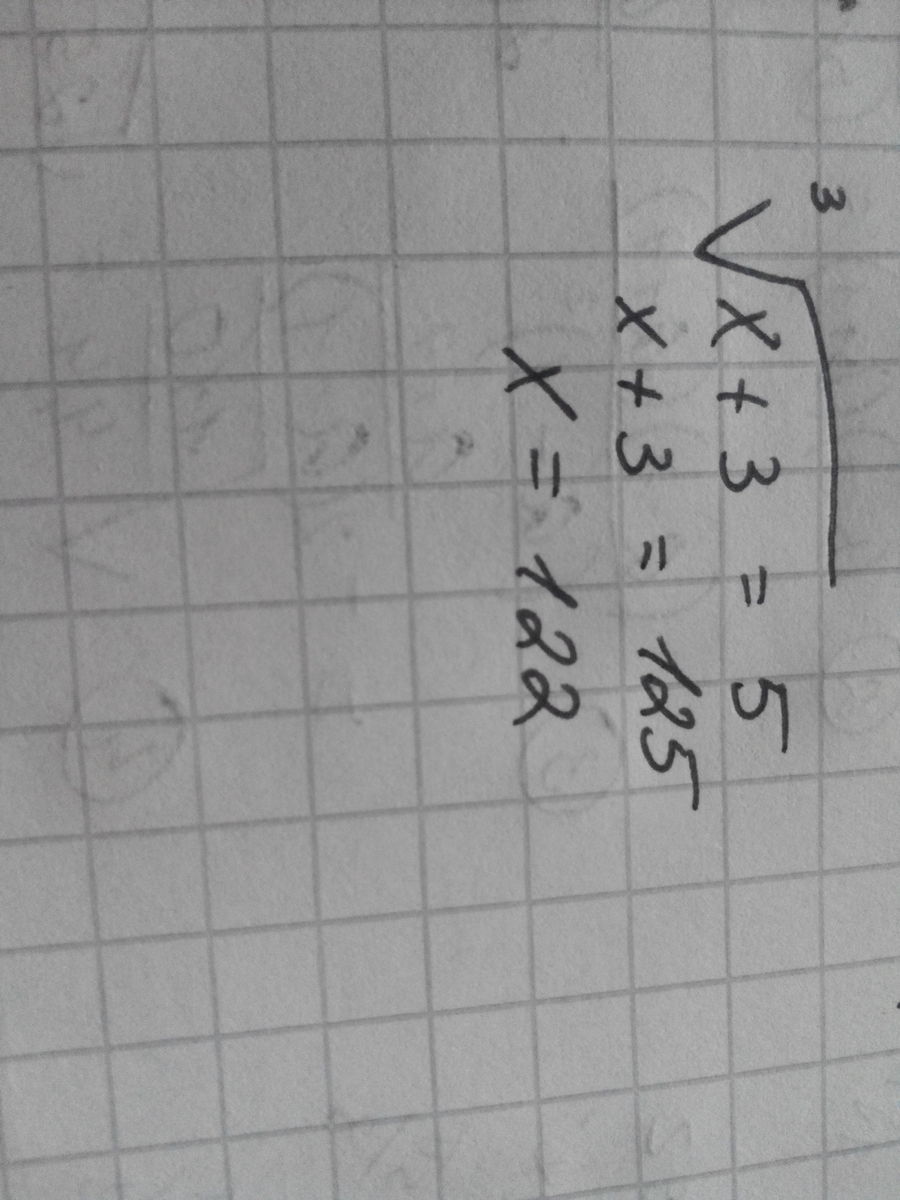 ∛(x + 3) = 5
x + 3 = 125
x = 122